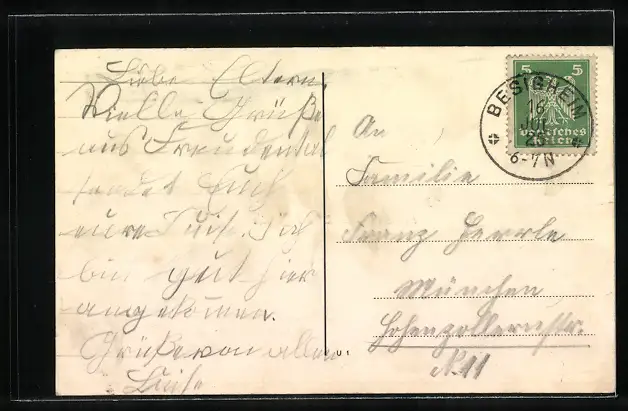 Liebe Eltern.
Vielle Grüße
aus Freudental
sendet Euch
eure Luise. Ich
bin gut hier
angekomen.
Grüße von allen
Luise
5 5
Deutsches
Reich
BESIGHEIM
16
6-7N
An
Familie
Franz Herrle
München
Hohenzollernstr.
N. 11